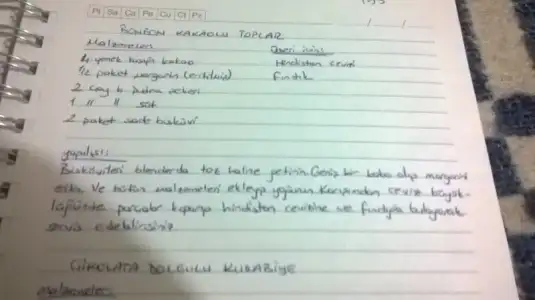 Pt Sa Ça Pe Cu Ct Pz
BONBON KAKAOLU TOPLAR
Malzemeler Üzeri için;
4 yemek kaşığı kakao Hindistan cevizi
1/2 paket margarin (eritilmiş) Fındık
2 çay b pudra şekeri
1 " " süt
2 paket sade bisküvi
yapılışı;
Bisküvileri blenderda toz haline getirin. Geniş bir kaba alıp margarini
Ve bütün malzemeleri ekleyip yoğurun. Karışımdan ceviz büyük-
lüğünde parçalar koparıp hindistan cevizine ve fındığa bulayarak
servis edebilirsiniz
ÇİKOLATA DOLGULU KURABİYE
Malzemeler: